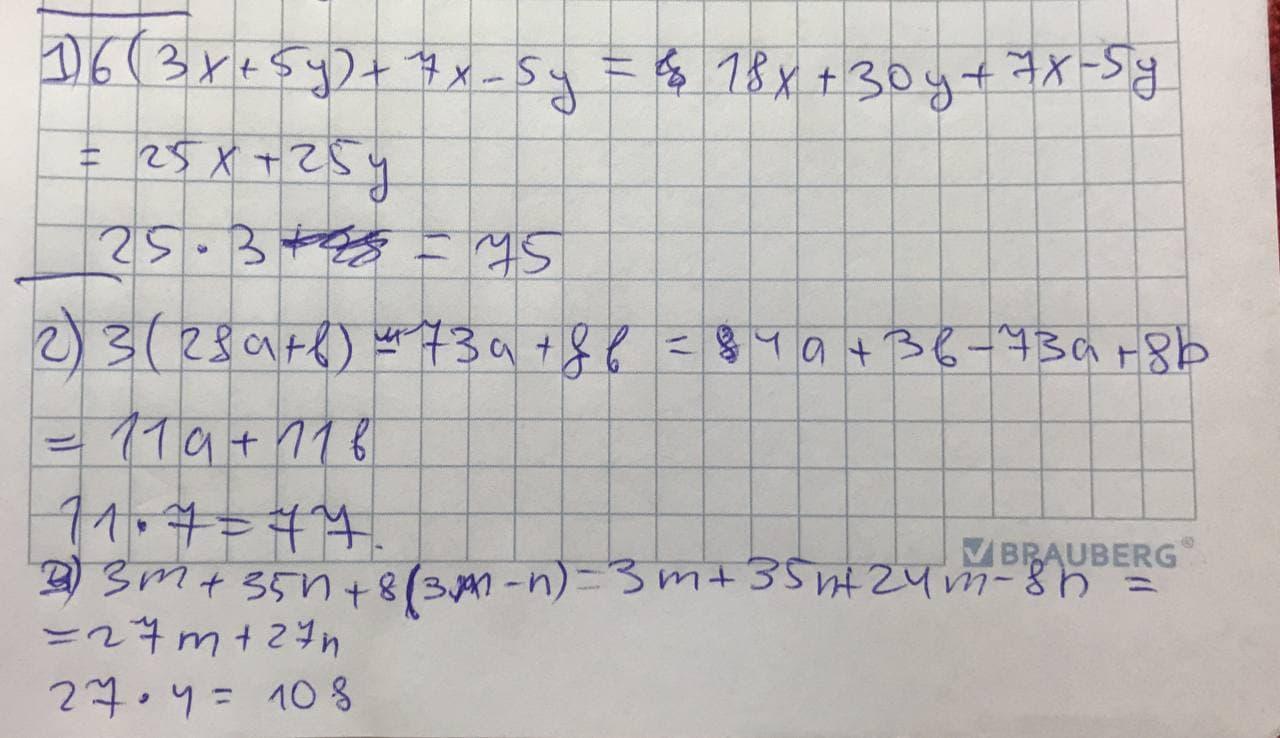 1) 6(3x+5y)+7x-5y = 18x+30y+7x-5y
= 25x+25y
25·3 = 75
2) 3(28a+b)-73a+8b = 84a+3b-73a+8b
= 11a+11b
11·7=77.
BRAUBERG®
3) 3m+35n+8(3m-n)=3m+35n+24m-8n =
=27m+27n
27·4= 108